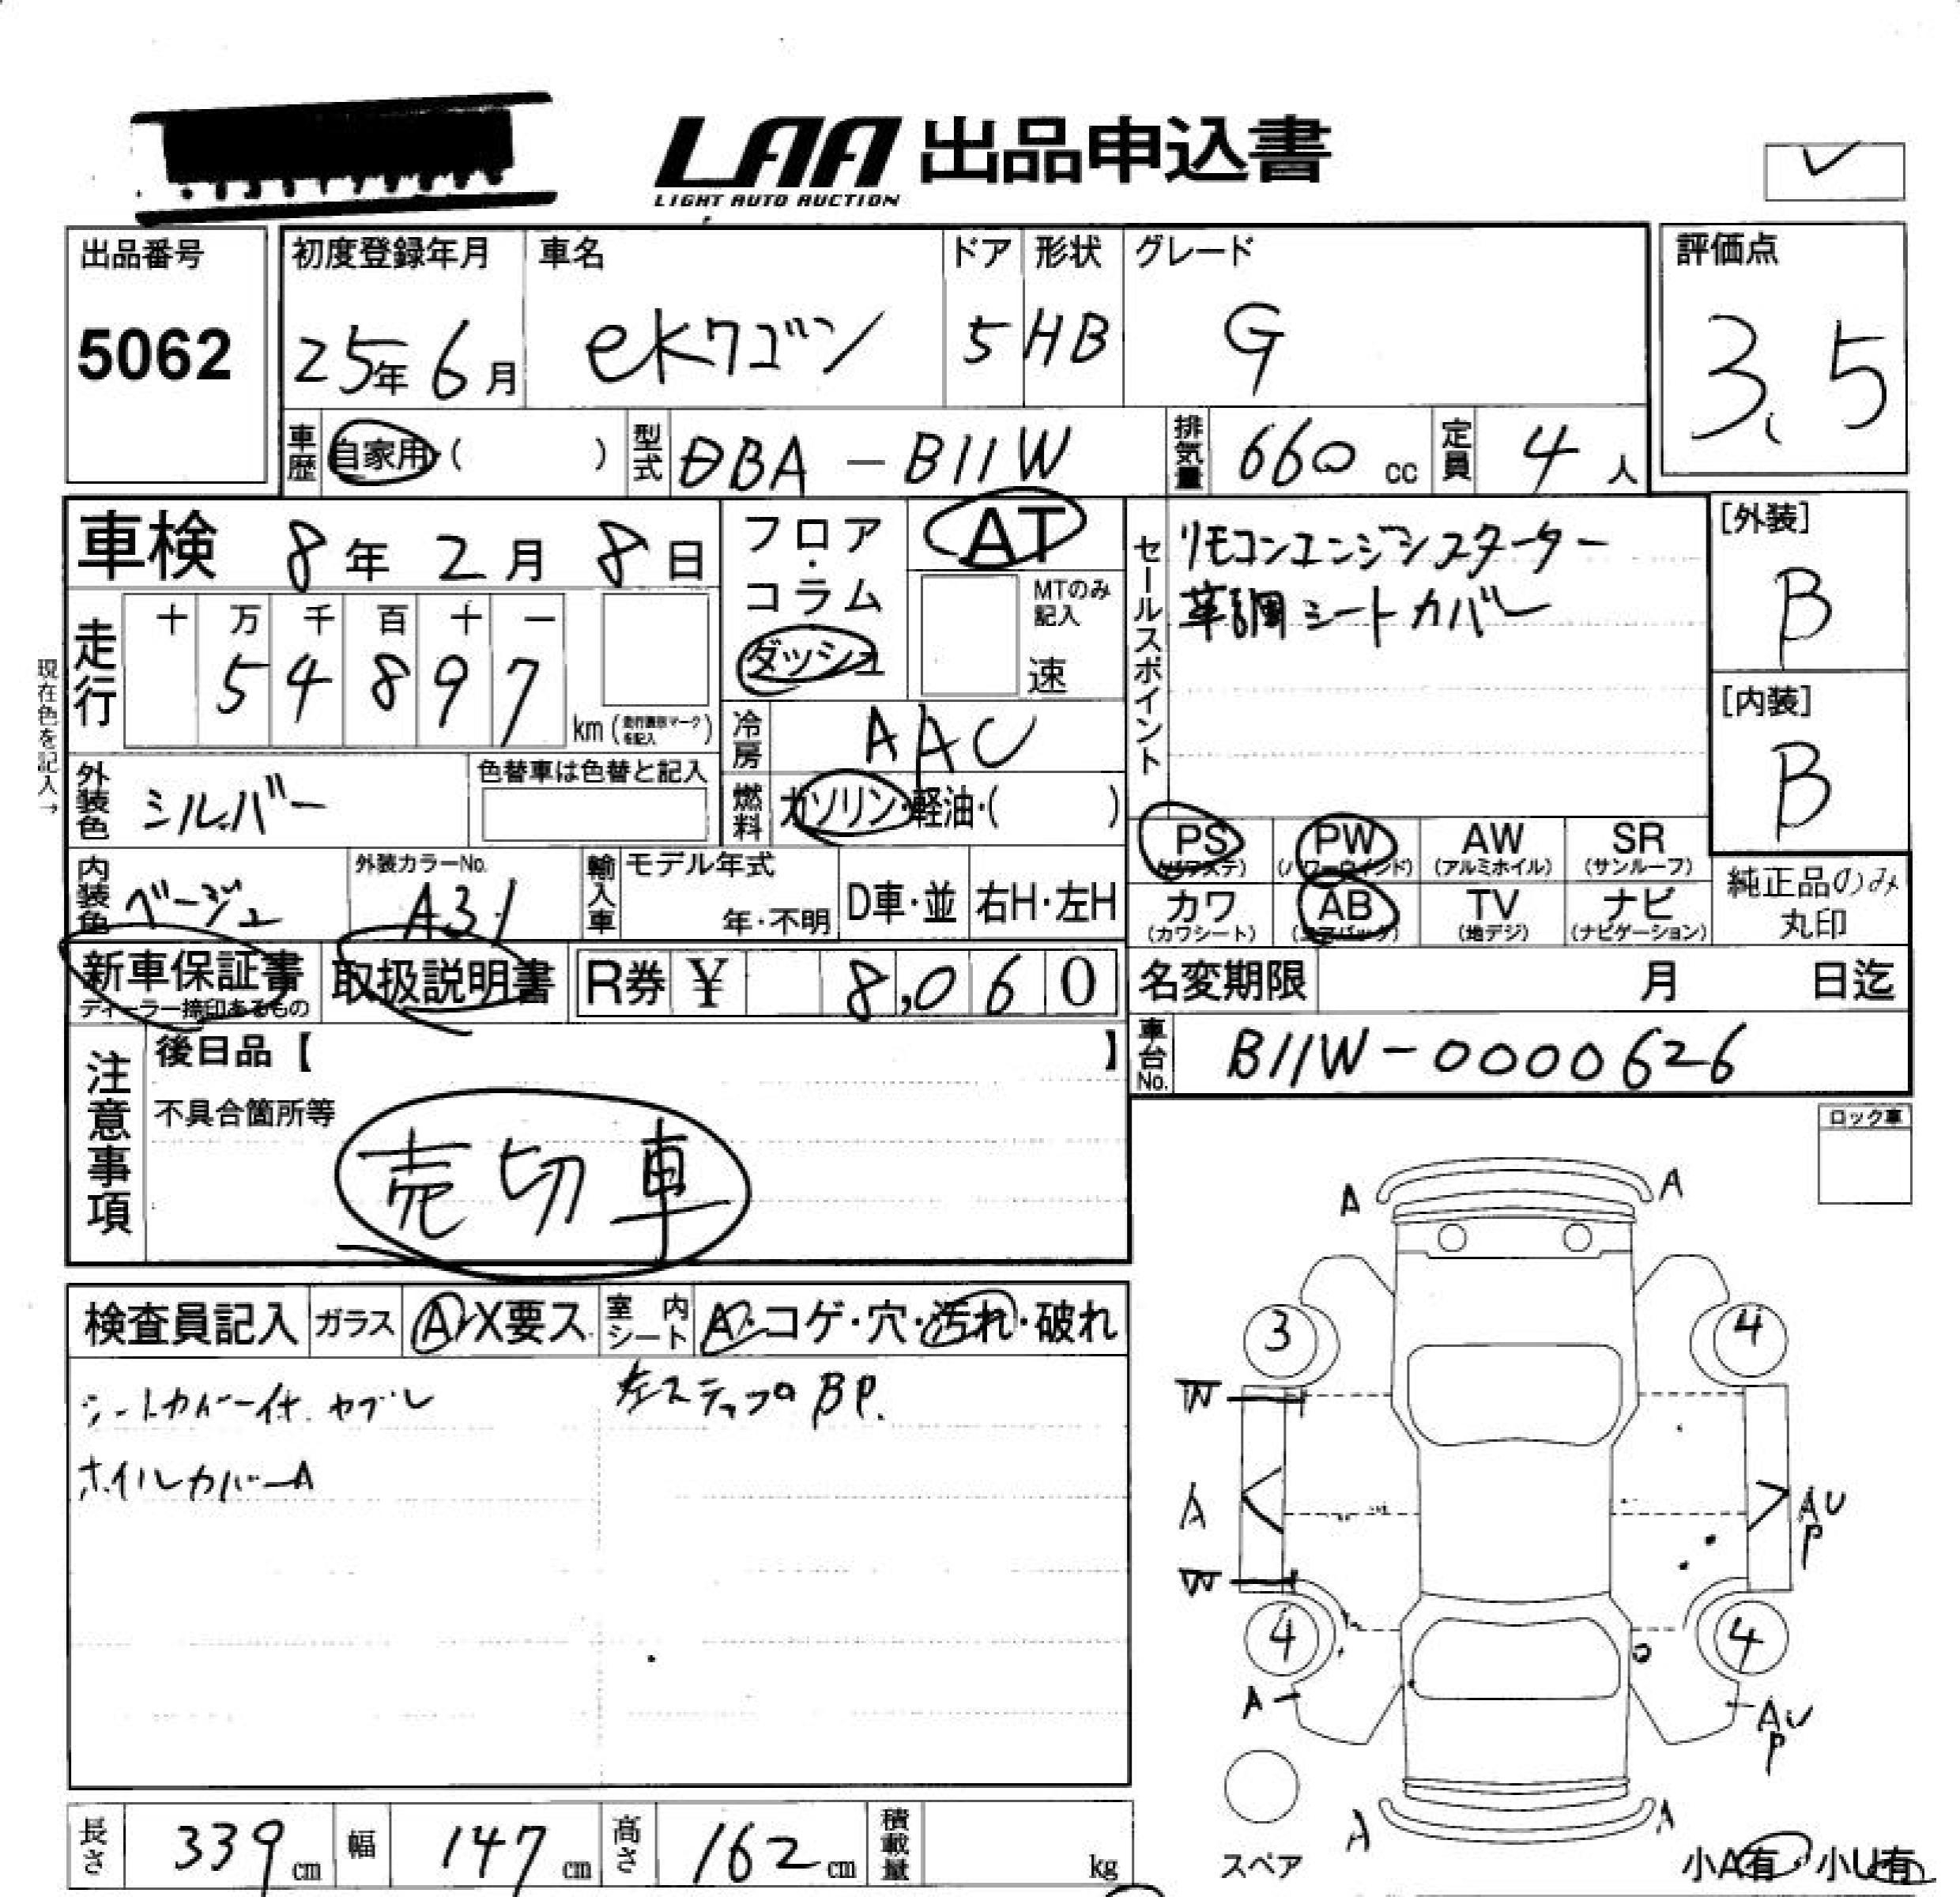 LAA 出品申込書
LIGHT AUTO AUCTION
出品番号
5062
初度登録年月
25年 6月
車名
ekワゴン
ドア
5
形状
HB
グレード
G
評価点
3.5
車歴 自家用・( )
型式 DBA-B11W
排気量 660 cc
定員 4人
車検 8年 2月 8日
フロア・コラム ダッシュ
AT
MTのみ記入
速
セールスポイント
リモコンエンジンスターター
革調シートカバー
[外装]
B
[内装]
B
現在色を記入→
走行
十 万 千 百 十 一
5 4 8 9 7
km
冷房 AAC
燃料 ガソリン・軽油・( )
外装色 シルバー
色替車は色替と記入
内装色 ベージュ
外装カラーNo.
A31
輸入車
モデル年式
年・不明
D車・並
右H・左H
PS (パワステ)
PW (パワーウインド)
AW (アルミホイル)
SR (サンルーフ)
カワ (カワシート)
AB (エアバック)
TV (地デジ)
ナビ (ナビゲーション)
純正品のみ
丸印
新車保証書
ディーラー捺印あるもの
取扱説明書
R券 ¥ 8,060
名変期限 月 日迄
車台No. B11W-0000626
注意事項
後日品【 】
不具合箇所等
売切車
ロック車
検査員記入
ガラス A・X要ス
室内シート A・コゲ・穴・汚れ・破れ
シートカバー付
左ステップ BP.
ホイルカバーA
A A
3 4
W
A
AU
P
W
4 4
A
AU
P
A A
スペア
小A有・小U有
長さ 339 cm
幅 147 cm
高さ 162 cm
積載量 kg